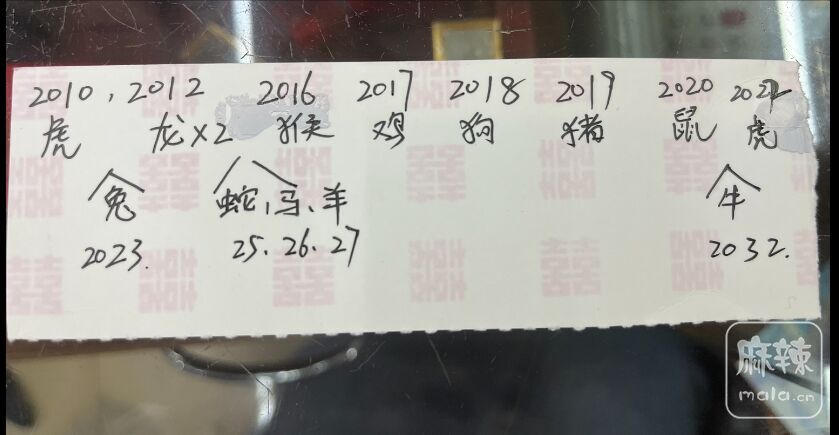 2010, 2012 2016 2017 2018 2019 2020 2022
虎 龙×2 猴 鸡 狗 猪 鼠 虎
兔 蛇、马、羊 牛
2023. 25. 26. 27 2032.
麻辣
mala.cn